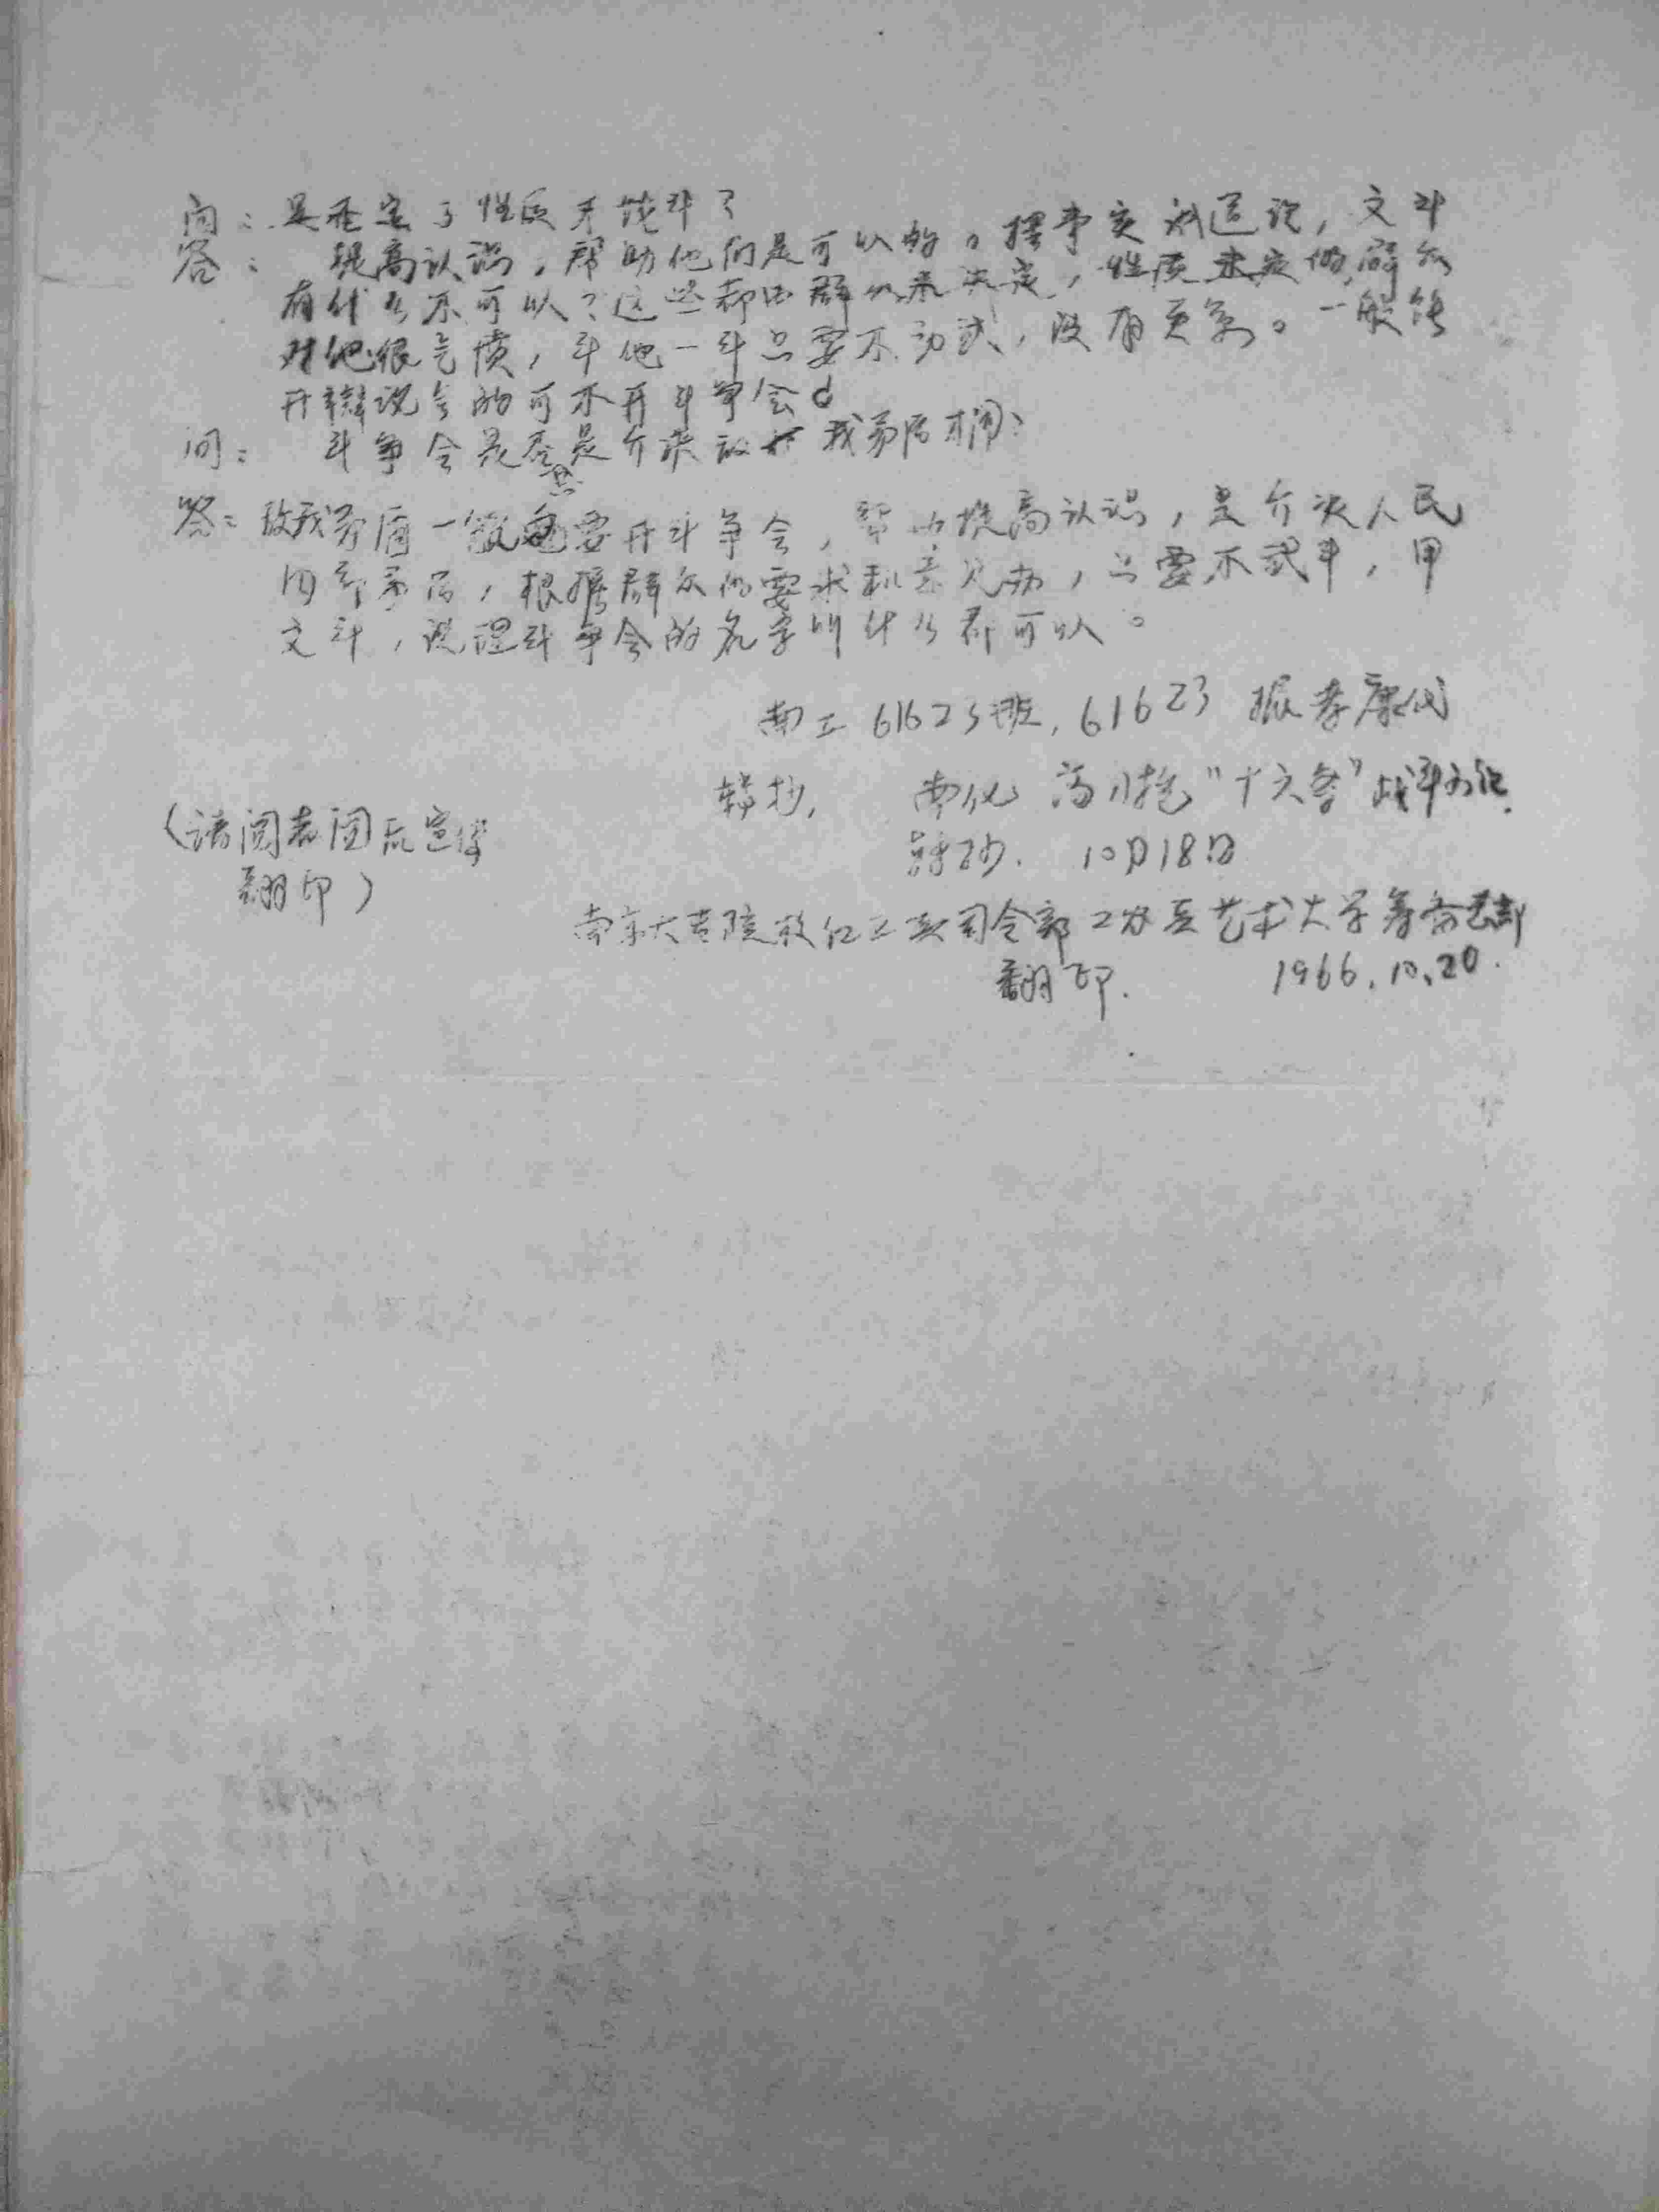 问：是否定了性质才能斗？
答：提高认识，帮助他们是可以的。摆事实讲道理，文斗
有什么不可以？这些都由群众来决定，性质未定但群众
对他很气愤，斗他一斗只要不动武，没有关系。一般能
开辩说会的可不开斗争会。
问：斗争会是否是介决敌我矛盾才开？
答：敌我矛盾一般要开斗争会，帮助提高认识，是介决人民
内部矛盾，根据群众的要求和意见办，只要不武斗，用
文斗，说理斗争会的名字叫什么都可以。
南工 61623班，61623
转抄，南化 "十六条"战斗
转抄. 10月18日
（请阅者阅后宣传
翻印）
南京大专院校红工兵司令部工农兵艺术大学筹委
翻印. 1966.10.20.